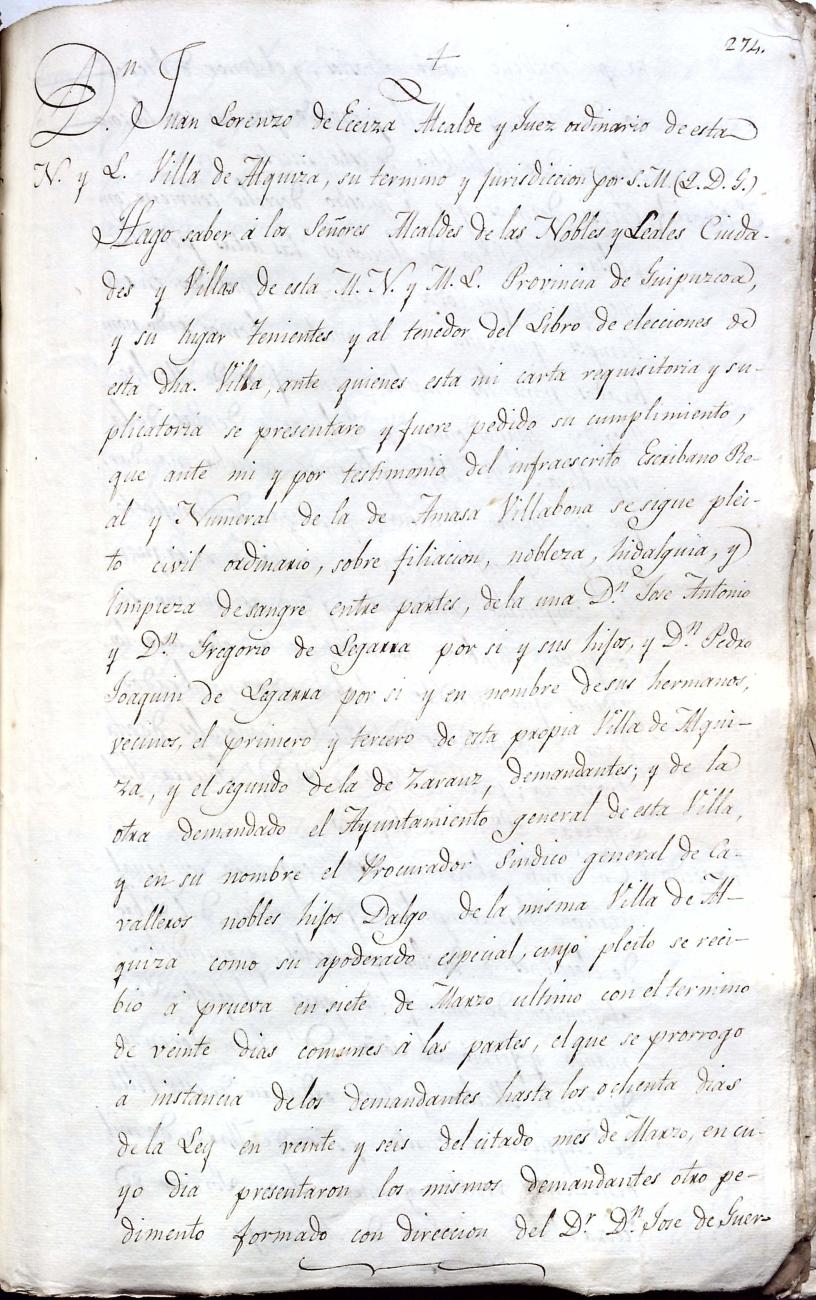 274.
+
Dn. Juan Lorenzo de Eceiza Alcalde y Juez ordinario de esta
N. y L. Villa de Alquiza, su termino y jurisdiccion por S. M. (Q. D. G.)
Hago saber á los Señores Alcaldes de las Nobles y Leales Ciuda-
des y Villas de esta M. N. y M. L. Provincia de Guipuzcoa,
y su lugar Tenientes y al tenedor del Libro de elecciones de
esta dha. Villa, ante quienes esta mi carta requisitoria y su-
plicatoria se presentare y fuere pedido su cumplimiento,
que ante mi y por testimonio del infraescrito Escribano Re-
al y Numeral de la de Amasa Villabona se sigue plei-
to civil ordinario, sobre filiacion, nobleza, hidalguia, y
limpieza de sangre entre partes, de la una Dn. Jose Antonio
y Dn. Gregorio de Legarra por si y sus hijos, y Dn. Pedro
Joaquin de Legarra por si y en nombre de sus hermanos,
vecinos, el primero y tercero de esta propia Villa de Alqui-
za, y el segundo de la de Zarauz, demandantes; y de la
otra demandado el Ayuntamiento general de esta Villa,
y en su nombre el Procurador Sindico general de Ca-
valleros nobles hijos Dalgo de la misma Villa de Al-
quiza como su apoderado especial, cuyo pleito se reci-
bio á prueva en siete de Marzo ultimo con el termino
de veinte dias comunes á las partes, el que se prorrogo
á instancia de los demandantes hasta los ochenta dias
de la Ley en veinte y seis del citado mes de Marzo, en cu-
yo dia presentaron los mismos demandantes otro pe-
dimento formado con direccion del Dr. Dn. Jose de Guer-